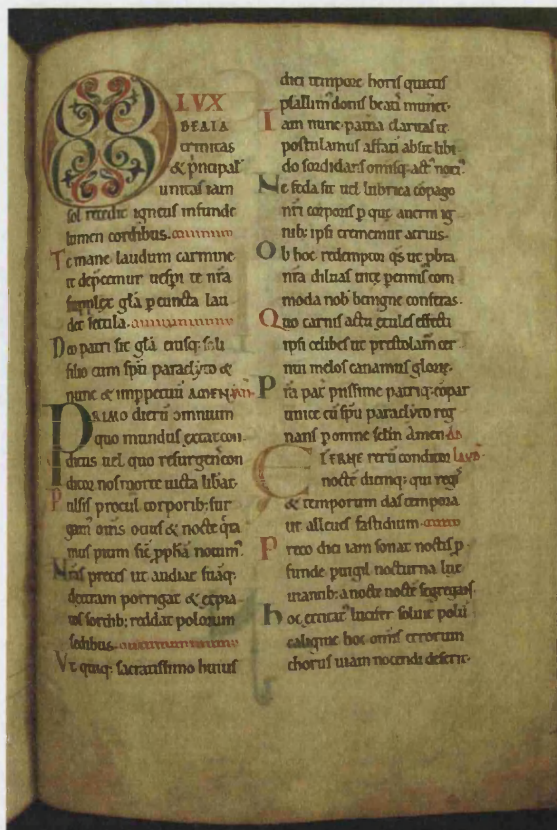 O LVX
BEATA
trinitas
& p̄ncipal᷒
unitas iam
sol recedit igneus infunde
lumen cordibus.
Te mane laudum carmine
te dep̄cemur uesp̄i te nr̄a
supplex gl̄a p cuncta lau
det secula.
Deo patri sit gl̄a eiusq; soli
filio cum sp̄u paraclyto &
nunc & imppetuū AMEN
PRIMO dierū omnium
quo mundus extat con
ditus uel quo resurgens con
ditor nos morte uicta liberat.
Pulsis procul corporib; sur
gam᷒ om̄s ocius & nocte q̄ra
mus pium sic̄ pph̄am nouim᷒.
Nr̄as preces ut audiat suāq;
dexteram porrigat & expia
tos sordib; reddat polorum
sedibus.
Vt quiq; sacratissimo huius
diei tempore horis quietis
psallim᷒ donis beatis muneret.
Iam nunc paterna claritas te
postulamus affatim absit libi
do sordidans omnisq; act᷒ noci᷒
Ne feda sit uel lubrica cōpago
nr̄i corporis p que auerni ig
nib; ipsi crememur acrius.
Ob hoc redemptor q̄s ut pbra
nr̄a diluas uite pennis com
moda nob̄ benigne conferas.
Quo carnis actu exules effecti
ipsi celibes ut prestolam᷒ cer
nui melos canamus glorie.
Pr̄a pat̄ piissime patriq; cōpar
unice cū sp̄u paraclyto reg
nans p omne sc̄lm Amen. AD
ETERNE rerū conditor LAVD̄
noctē diemq; qui regis
& temporum das tempora
ut alleues fastidium
Preco diei iam sonat noctis p
funde puigil nocturna lux
uiantib; a nocte noctē segregans.
Hoc excitat᷒ lucifer soluit polū
caligine hoc om̄is errorum
chorus uiam nocendi deserit.